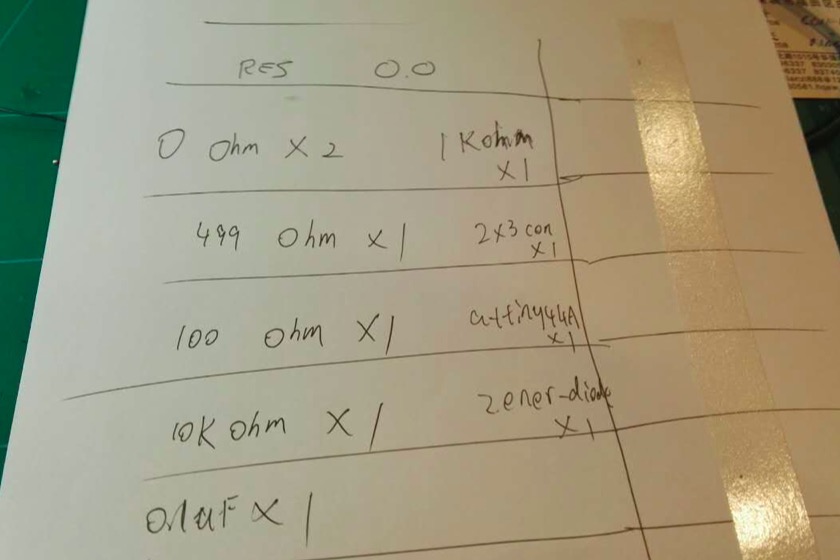 RES 0.0
0 ohm X 2 1 Kohmm
X 1
499 Ohm X 1 2x3 con
X 1
100 ohm X 1 attiny44A
X 1
10K Ohm X 1 zener-diode
X 1
0.1uF X 1